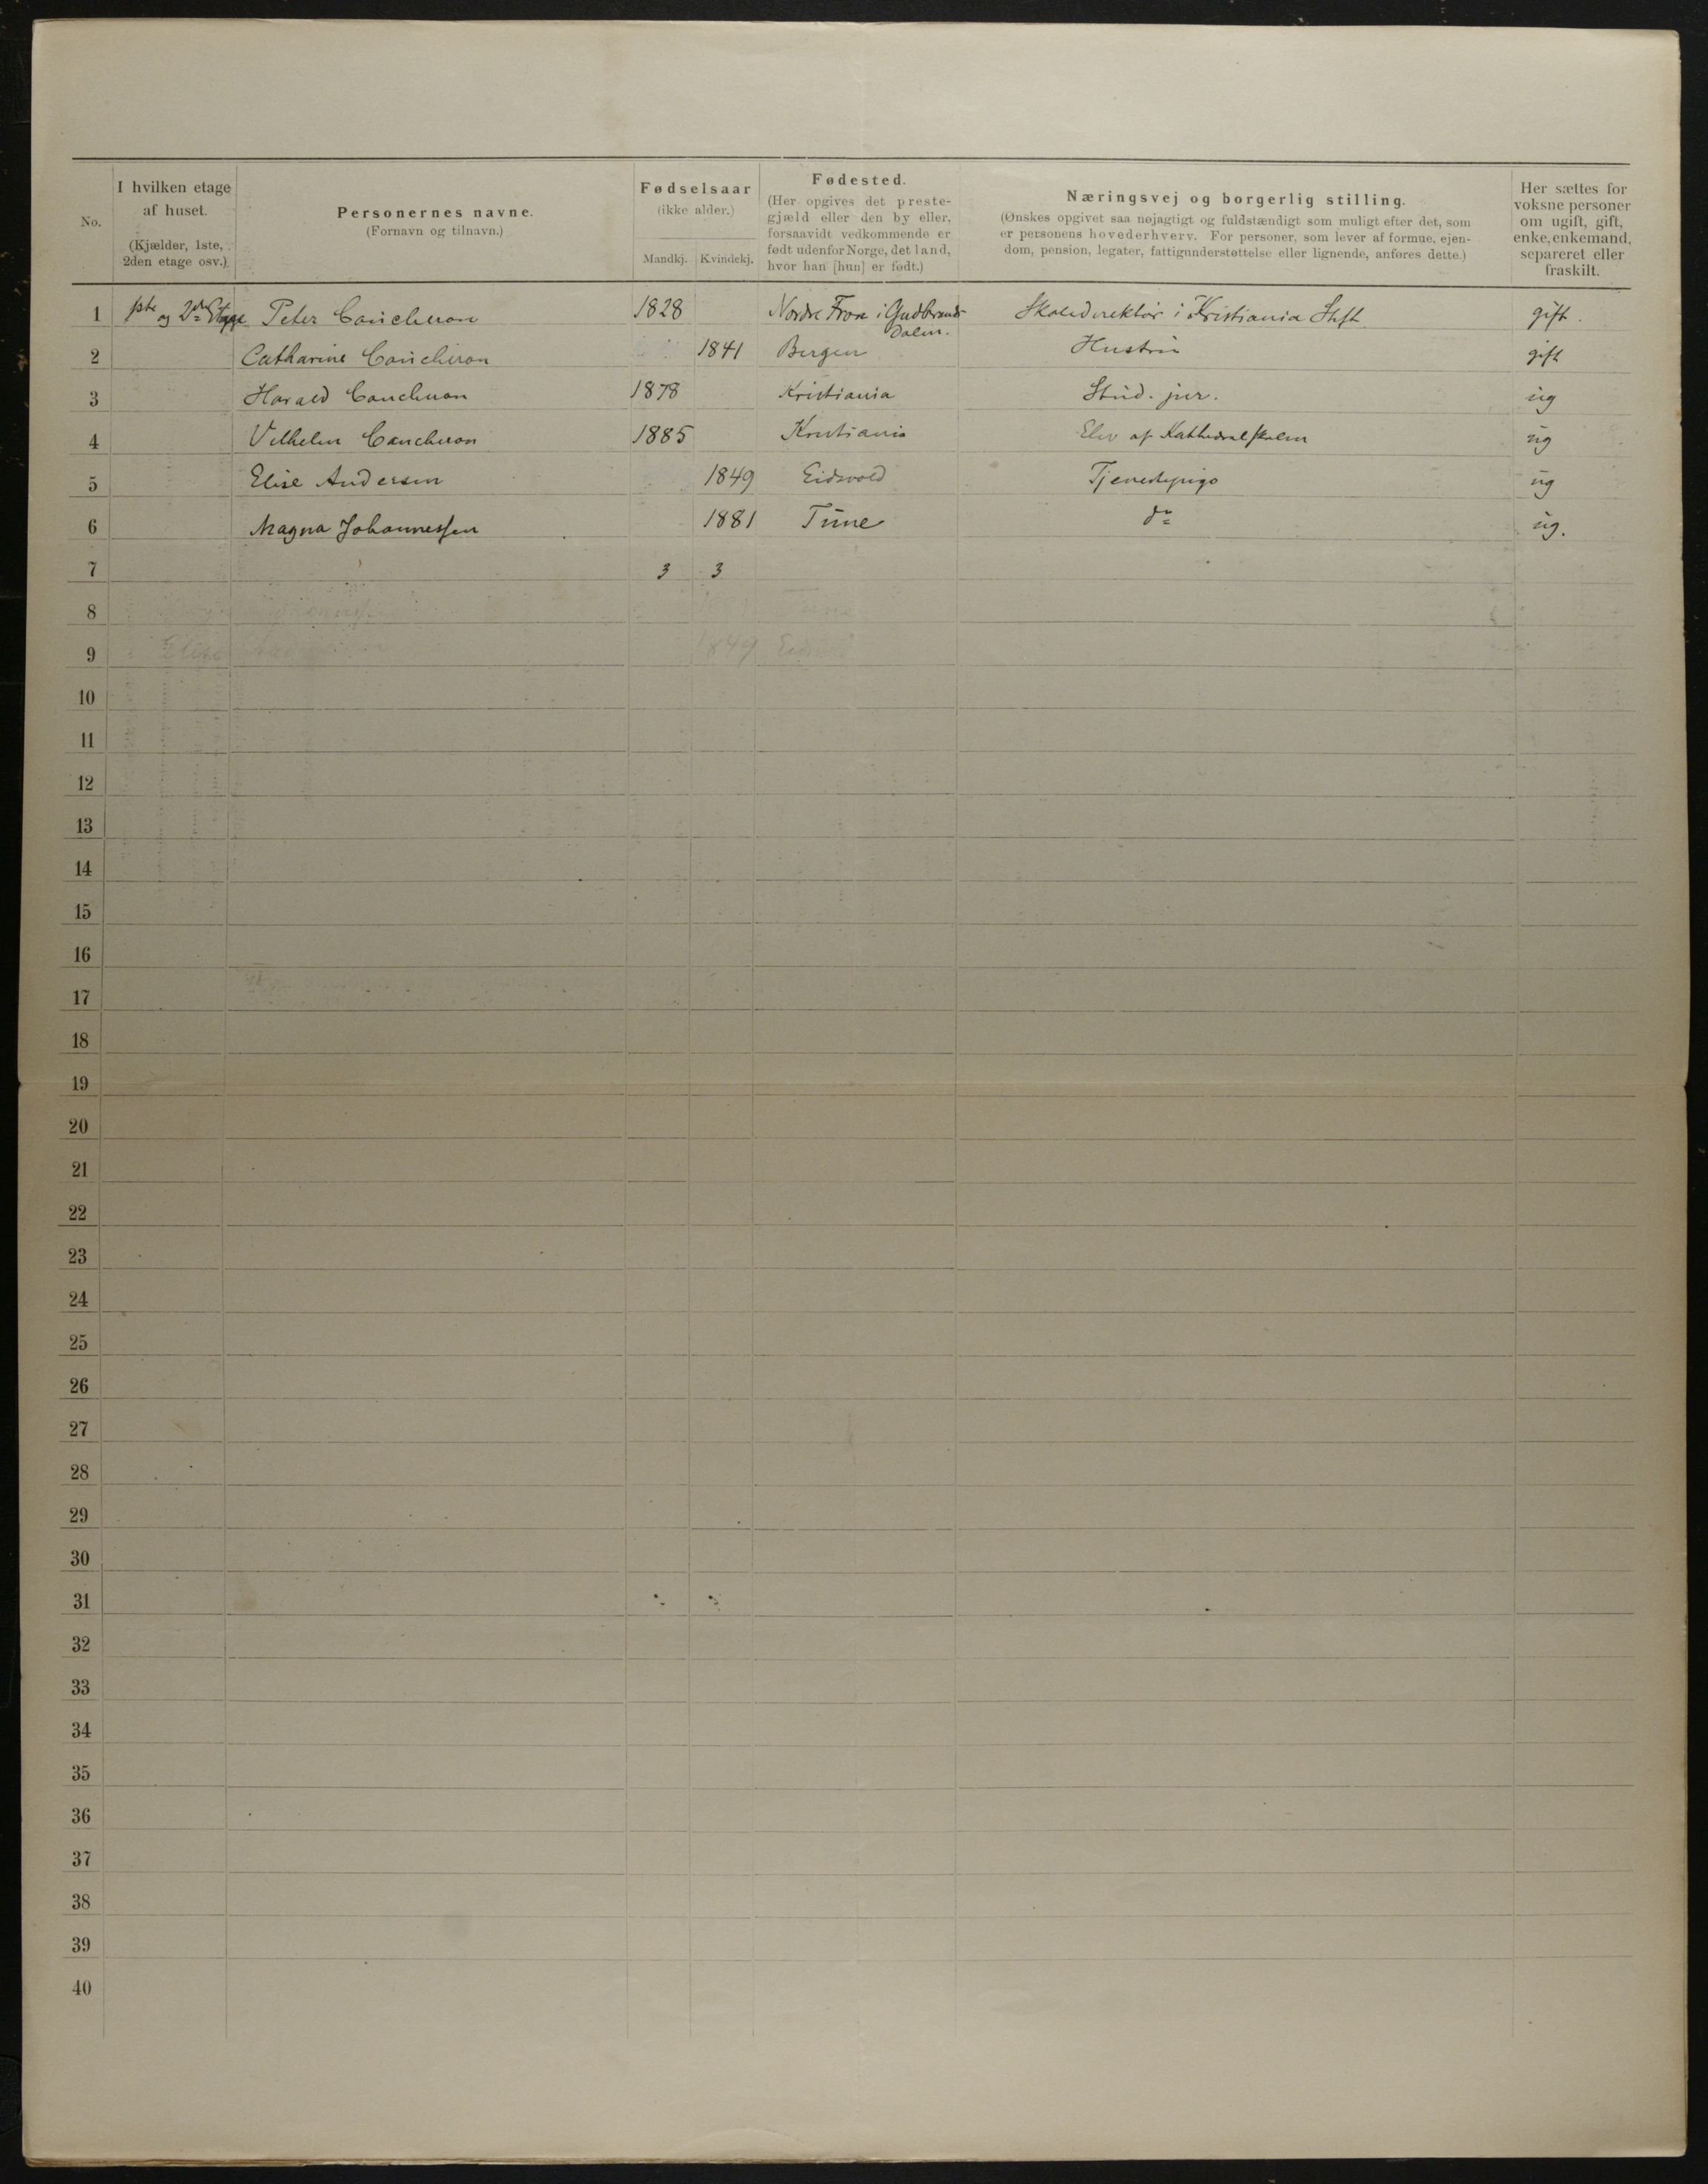 No.
I hvilken etage
af huset.
(Kjælder, 1ste,
2den etage osv.)
Personernes navne.
(Fornavn og tilnavn.)
Fødselsaar
(ikke alder.)
Mandkj. Kvindekj.
Fødested.
(Her opgives det preste-
gjæld eller den by eller,
forsaavidt vedkommende er
født udenfor Norge, det land,
hvor han [hun] er født.)
Næringsvej og borgerlig stilling.
(Ønskes opgivet saa nøjagtigt og fuldstændigt som muligt efter det, som
er personens hovederhverv. For personer, som lever af formue, ejen-
dom, pension, legater, fattigunderstøttelse eller lignende, anføres dette.)
Her sættes for
voksne personer
om ugift, gift,
enke, enkemand,
separeret eller
fraskilt.
1 1ste og 2den Etage Peter Coucheron 1828 Nordre Fron i Gudbrands- Skoledirektør i Kristiania Stift gift.
dalen.
2 Catharine Coucheron 1841 Bergen Hustru gift
3 Harald Coucheron 1878 Kristiania Stud. jur. ug
4 Vilhelm Coucheron 1885 Kristiania Elev af Kathedralskolen ug
5 Elise Andersen 1849 Eidsvold Tjenestepige ug
6 Magna Johannessen 1881 Tune do ug.
7 3 3
8
9 Elise 1849 Eidsvold
10
11
12
13
14
15
16
17
18
19
20
21
22
23
24
25
26
27
28
29
30
31
32
33
34
35
36
37
38
39
40